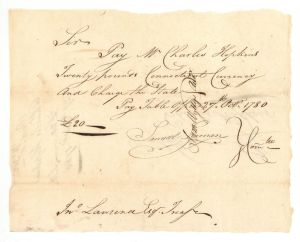 Sir
Pay Mr Charles Hopkins
Twenty pounds Connecticut Currency
And Charge the State
Pay Table Office 27th Octr. 1780
£20
Comtee
Jno Lawrence Esqr Treasr